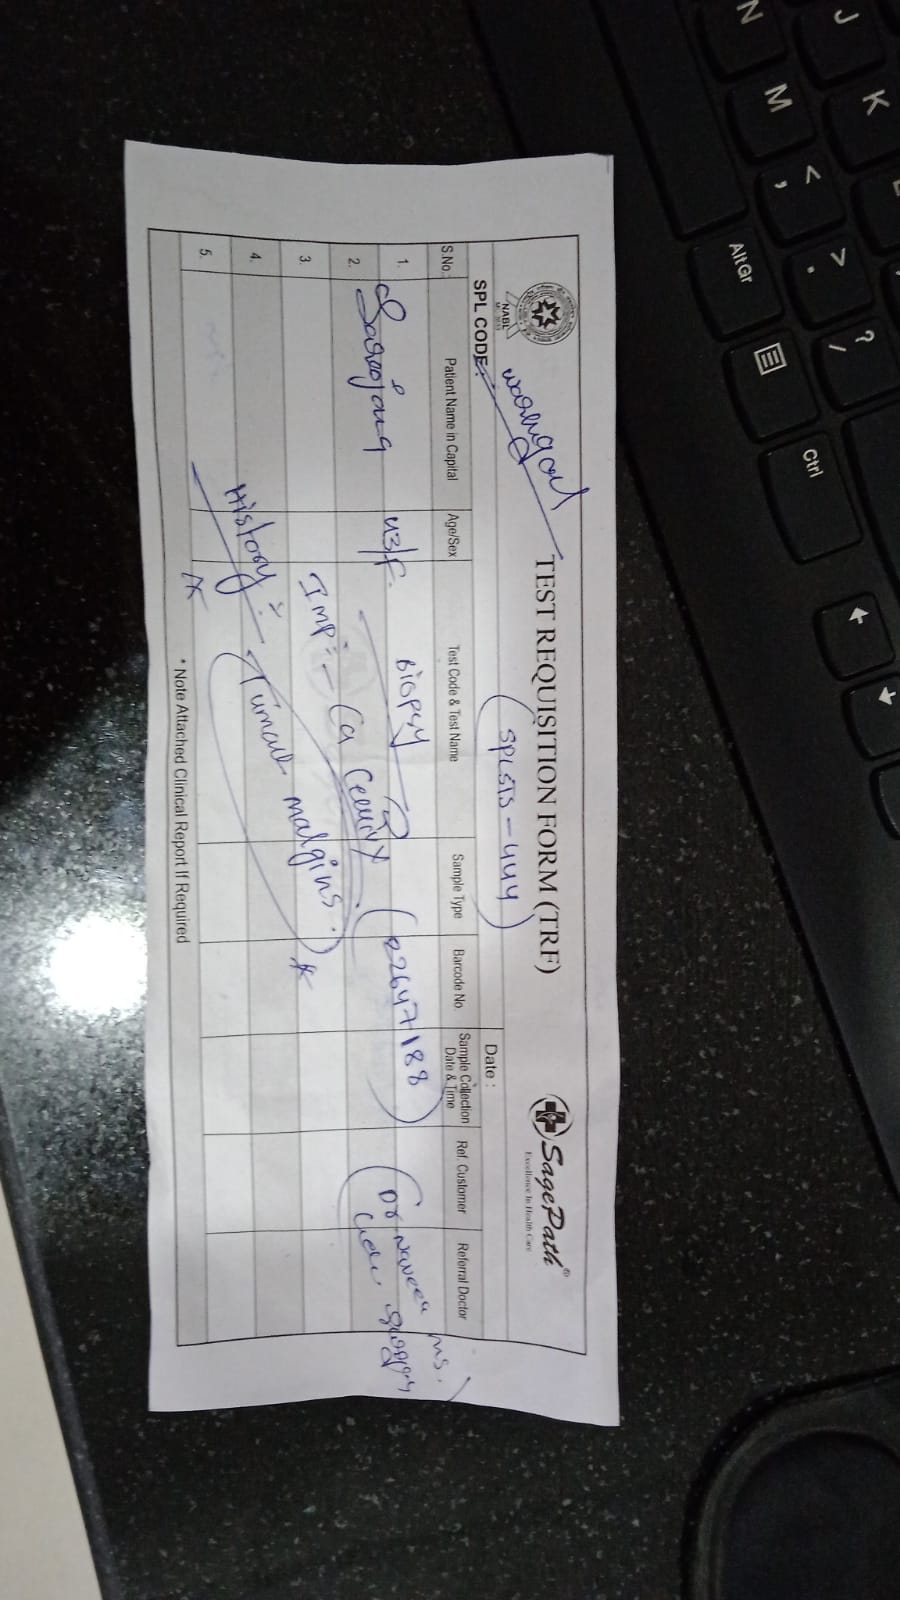 TEST REQUISITION FORM (TRF)
NABL
SagePath®
Excellence In Health Care
SPL CODE:
Warangal
(SPLSTS-444)
Date :
S.No. Patient Name in Capital Age/Sex Test Code & Test Name Sample Type Barcode No. Sample Collection Date & Time Ref. Customer Referral Doctor
1. Sarojana 43/F. Biopsy (02647188) Dr Naveen MS.
2.
Imp:- Ca Cervix
3.
History:- (Tumour margins.) *
4.
5.
* Note Attached Clinical Report If Required
N
M
J
K
<
,
>
.
?
/
AltGr
Ctrl